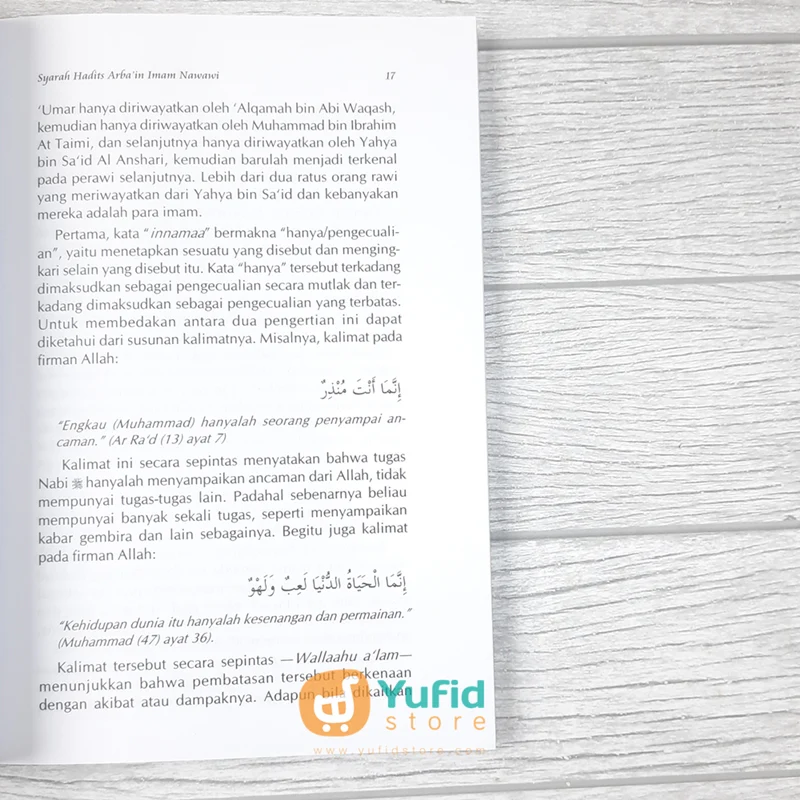 Syarah Hadits Arba'in Imam Nawawi 17
'Umar hanya diriwayatkan oleh 'Alqamah bin Abi Waqash,
kemudian hanya diriwayatkan oleh Muhammad bin Ibrahim
At Taimi, dan selanjutnya hanya diriwayatkan oleh Yahya
bin Sa'id Al Anshari, kemudian barulah menjadi terkenal
pada perawi selanjutnya. Lebih dari dua ratus orang rawi
yang meriwayatkan dari Yahya bin Sa'id dan kebanyakan
mereka adalah para imam.
Pertama, kata "innamaa" bermakna "hanya/pengecuali-
an", yaitu menetapkan sesuatu yang disebut dan menging-
kari selain yang disebut itu. Kata "hanya" tersebut terkadang
dimaksudkan sebagai pengecualian secara mutlak dan ter-
kadang dimaksudkan sebagai pengecualian yang terbatas.
Untuk membedakan antara dua pengertian ini dapat
diketahui dari susunan kalimatnya. Misalnya, kalimat pada
firman Allah:
إِنَّمَا أَنْتَ مُنْذِرٌ
"Engkau (Muhammad) hanyalah seorang penyampai an-
caman." (Ar Ra'd (13) ayat 7)
Kalimat ini secara sepintas menyatakan bahwa tugas
Nabi ﷺ hanyalah menyampaikan ancaman dari Allah, tidak
mempunyai tugas-tugas lain. Padahal sebenarnya beliau
mempunyai banyak sekali tugas, seperti menyampaikan
kabar gembira dan lain sebagainya. Begitu juga kalimat
pada firman Allah:
إِنَّمَا الْحَيَاةُ الدُّنْيَا لَعِبٌ وَلَهْوٌ
"Kehidupan dunia itu hanyalah kesenangan dan permainan."
(Muhammad (47) ayat 36).
Kalimat tersebut secara sepintas —Wallaahu a'lam—
menunjukkan bahwa pembatasan tersebut berkenaan
dengan akibat atau dampaknya. Adapun bila dikaitkan
Yufid
store
www.yufidstore.com